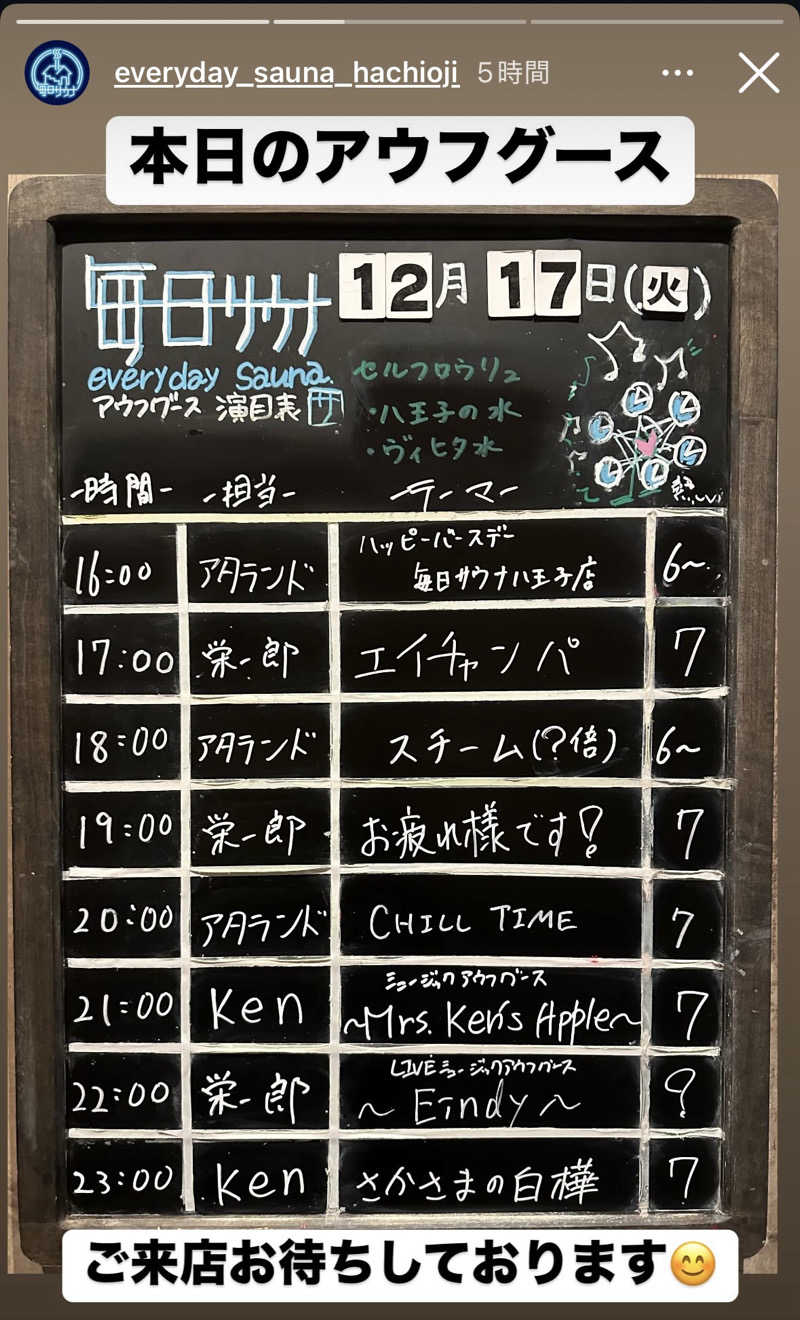 everyday_sauna_hachioji 5時間
本日のアウフグース
毎日サウナ
毎日サウナ 12月 17日(火)
everyday sauna.
アウフグース 演目表 サ
セルフロウリュ
・八王子の水
・ヴィヒタ水
-時間- -担当- -テーマ- 熱レベル
16:00 アタランド ハッピーバースデー 毎日サウナ八王子店 6~
17:00 栄一郎 エイチャンパ 7
18:00 アタランド スチーム(?倍) 6~
19:00 栄一郎 お疲れ様です! 7
20:00 アタランド CHILL TIME 7
21:00 Ken ミュージックアウフグース ~Mrs. Ken's Apple~ 7
22:00 栄一郎 LIVEミュージックアウフグース ~Eindy~ ?
23:00 Ken さかさまの白樺 7
ご来店お待ちしております😊